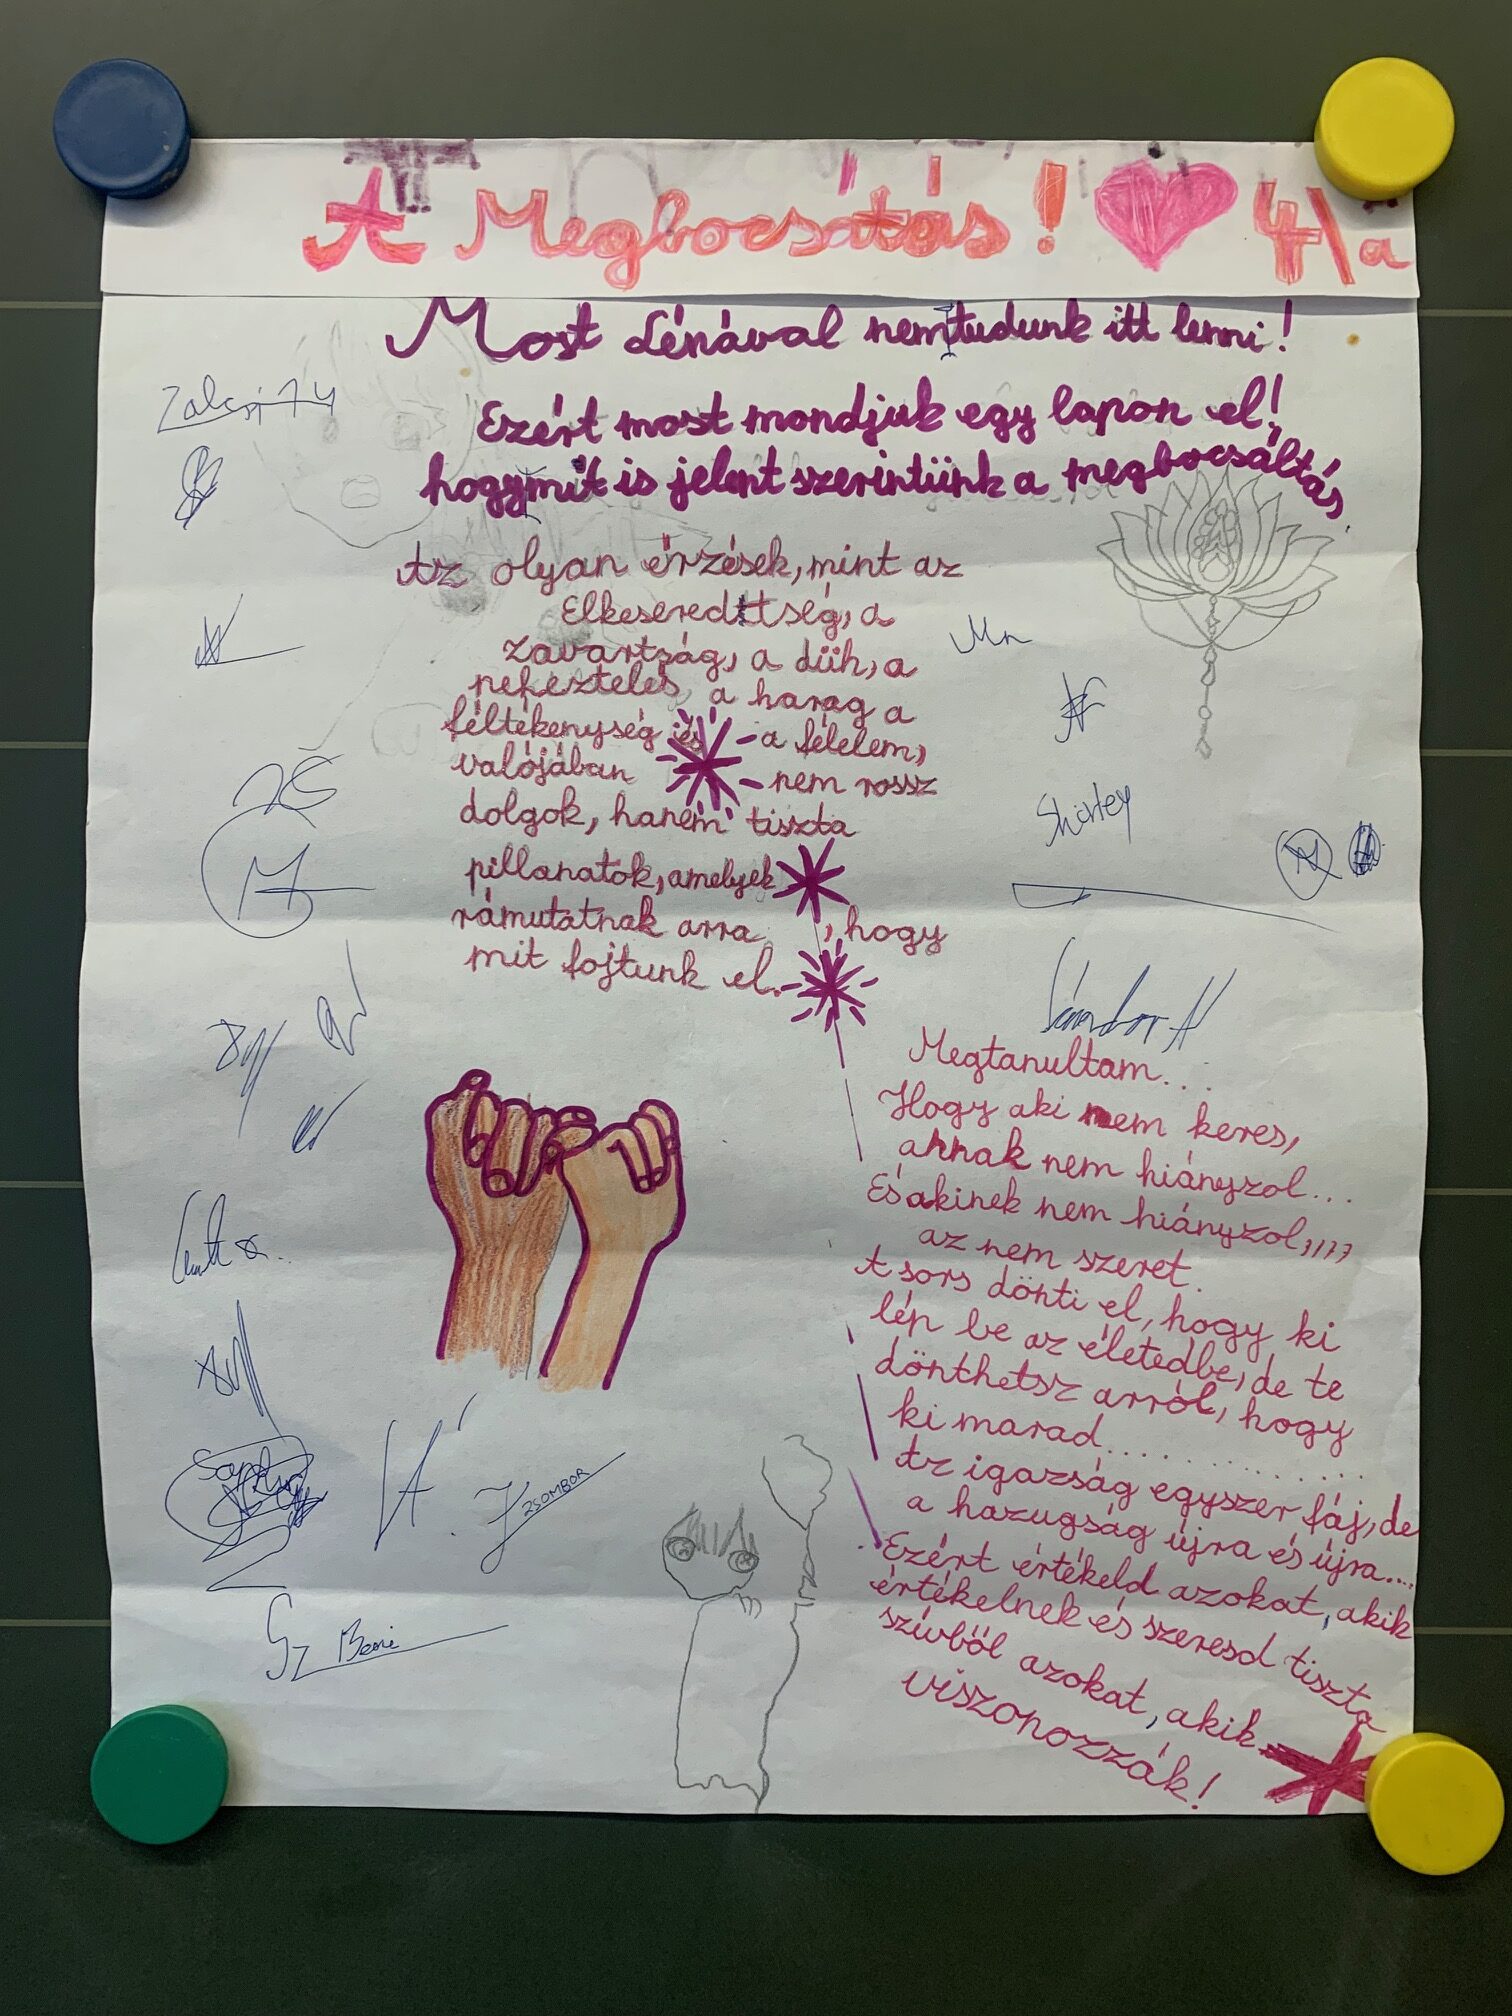 A Megbocsátás! 4\a
Most Lénával nemtudunk itt lenni!
Ezért most mondjuk egy lapon el!
hogymit is jelent szerintünk a megbocsáltás
Az olyan érzések, mint az
Elkeseredttség, a
Zavartság, a düh, a
neheztelés, a harag a
féltékenység és a félelem,
valójában nem rossz
dolgok, hanem tiszta
pillanatok, amelyek
rámutatnak arra, hogy
mit fojtunk el.
Shirley
Sándor A
Megtanultam...
Hogy aki nem keres,
annak nem hiányzol...
És akinek nem hiányzol,,,,,
az nem szeret.
A sors dönti el, hogy ki
lép be az életedbe, de te
dönthetsz arról, hogy
ki marad..................
Az igazság egyszer fáj, de
a hazugság újra és újra....
Ezért értékeld azokat, akik
értékelnek és szeresd tiszta
szívből azokat, akik
viszonozzák!
ZSOMBOR
Sz Beni